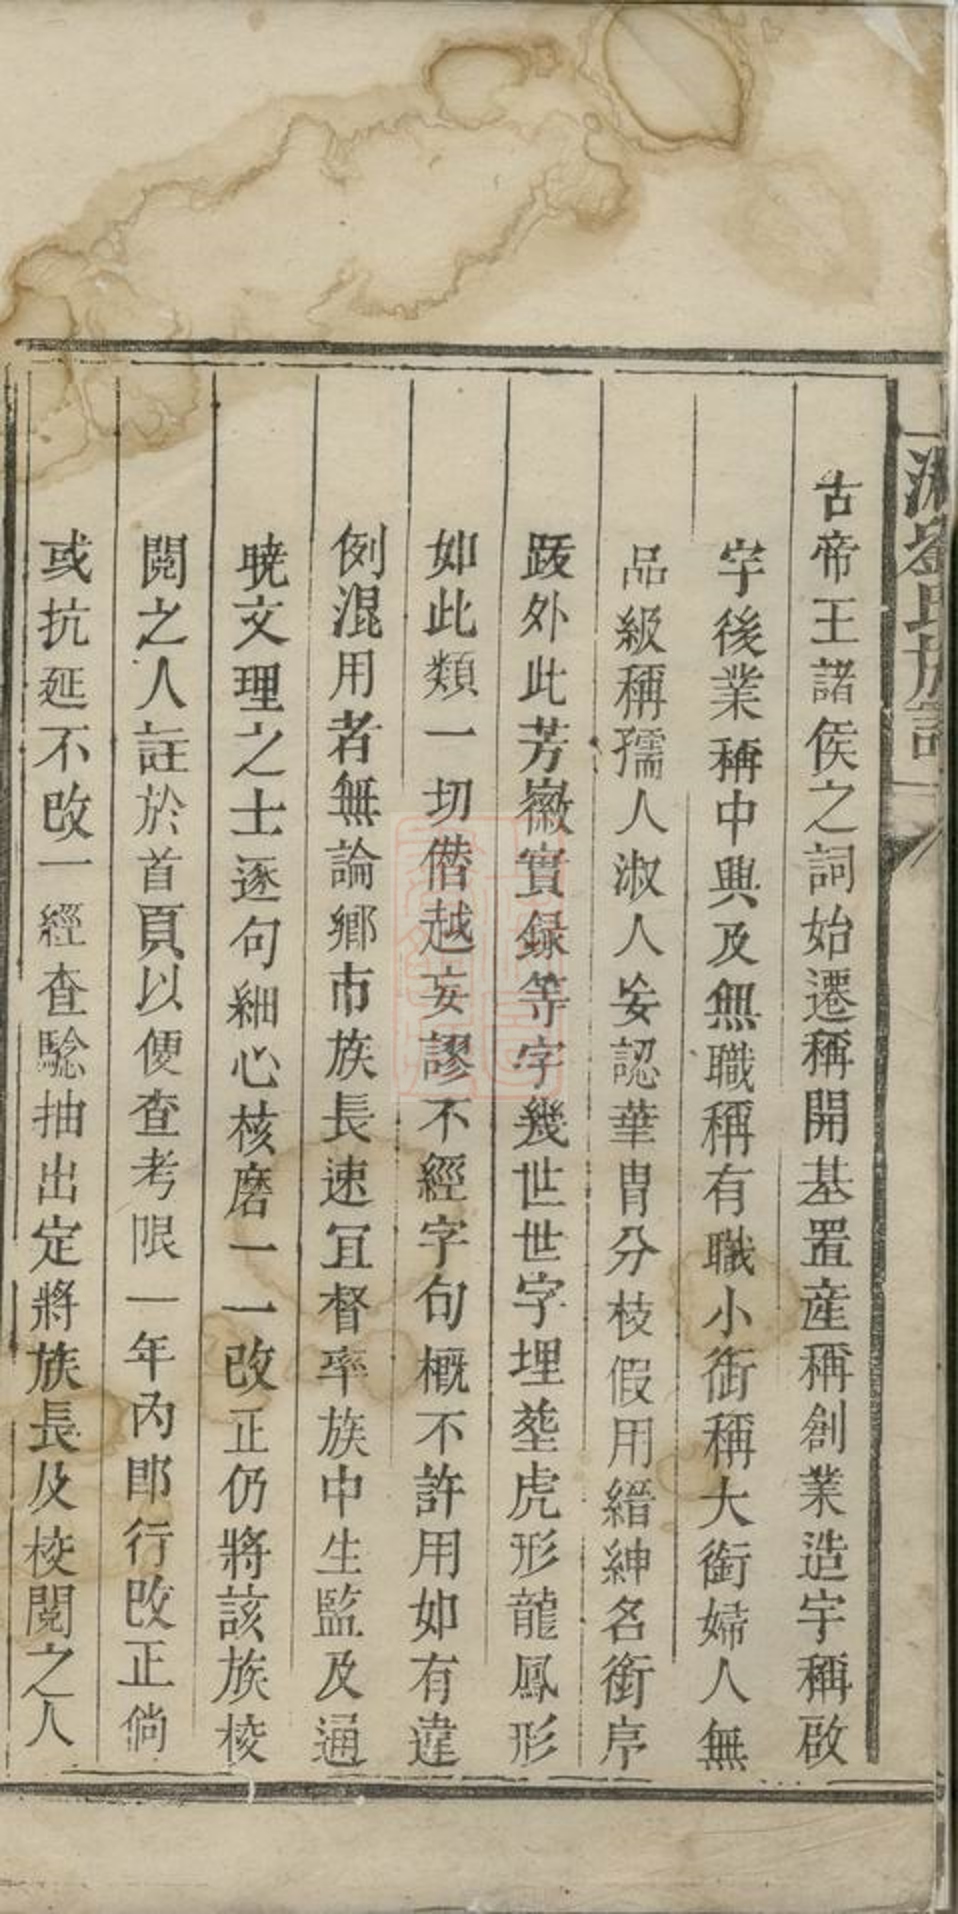 劉氏族譜
古帝王諸侯之詞始遷稱開基置産稱創業造宇稱啟
宇後業稱中興及無職稱有職小銜稱大銜婦人無
品級稱孺人淑人妄認華胄分枝假用縉紳名銜序
跋外此芳徽實録等字幾世世字埋塟虎形龍鳳形
如此類一切僣越妄謬不經字句概不許用如有違
例混用者無論鄉市族長速宜督率族中生監及通
曉文理之士逐句細心核磨一一改正仍將該族校
閱之人註於首頁以便查考限一年內卽行改正倘
或抗延不改一經查騐抽出定將族長及校閱之人